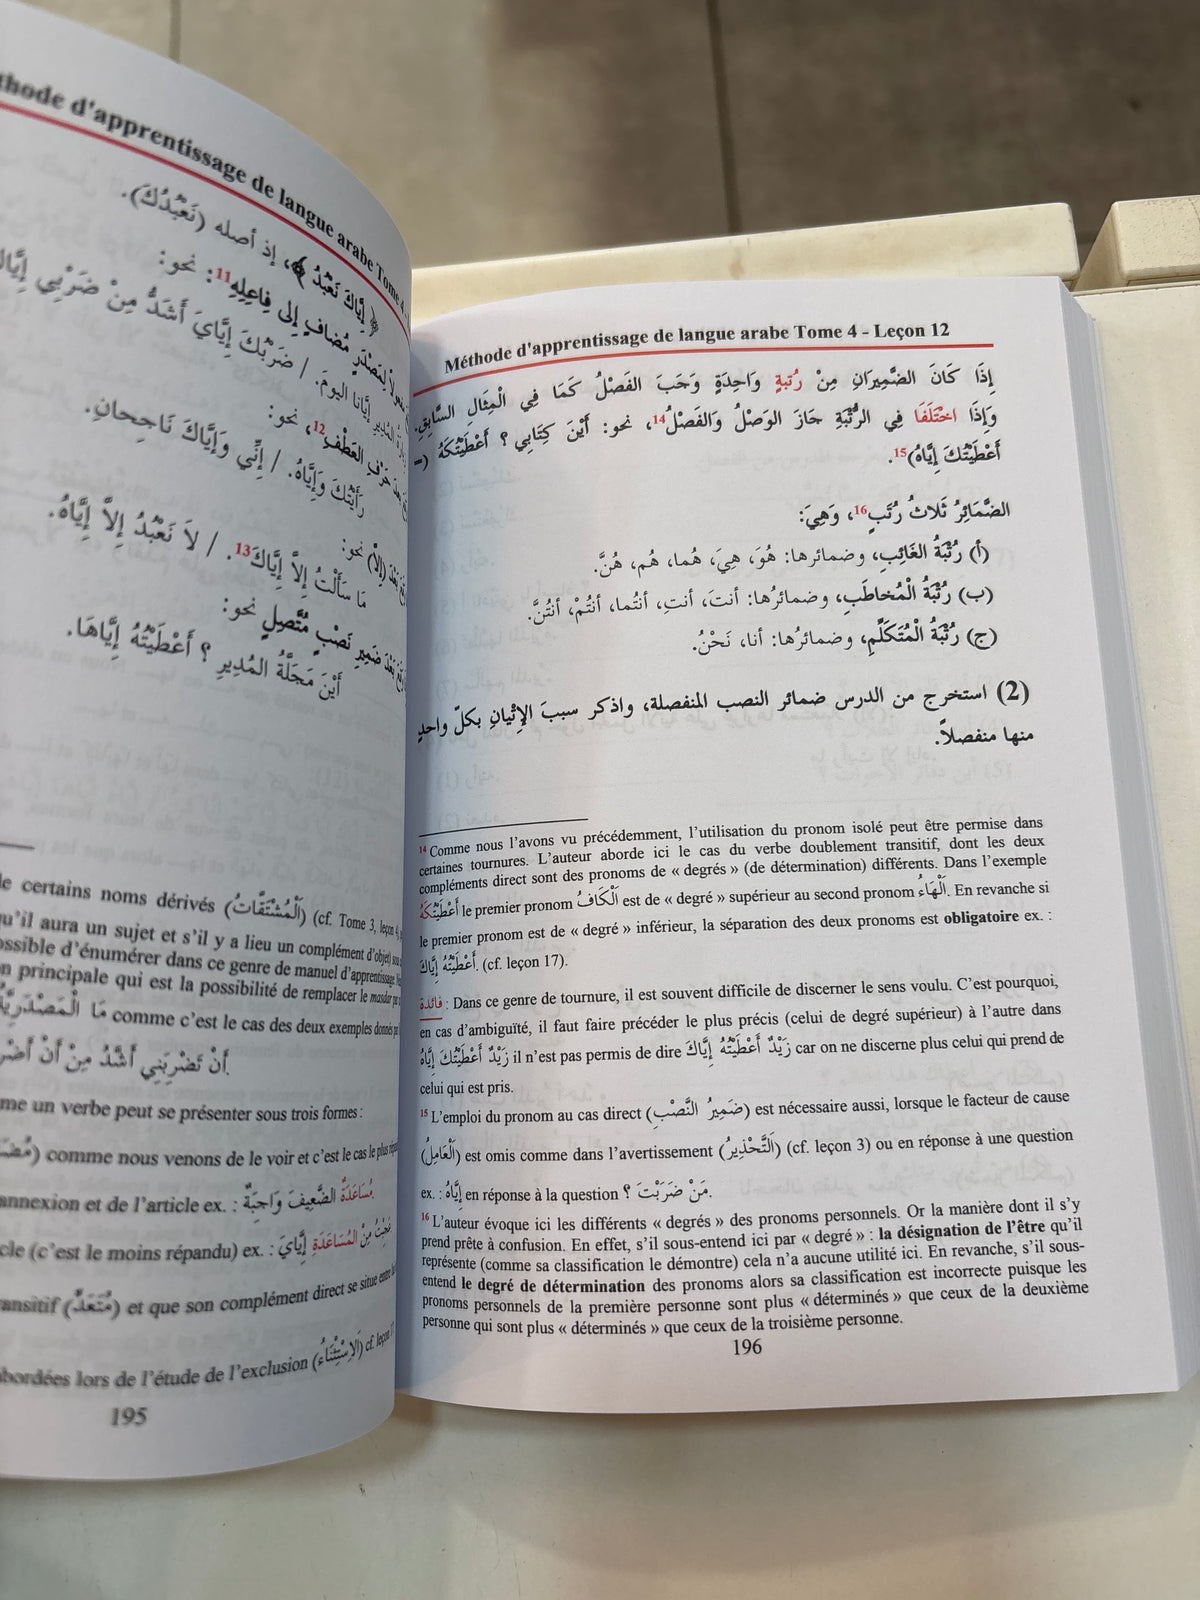 thode d'apprentissage de langue arabe Tome 4
﴿ إِيَّاكَ نَعْبُدُ ﴾، إذ أصله (نَعْبُدُكَ).
لِمَصْدَرٍ مُضافٍ إِلى فِاعِلِهِ11: نحو:
إِيَّانا اليومَ. / ضَرْبُكَ إِيَّايَ أَشَدُّ مِنْ ضَرْبِي
حَرْفِ العَطْفِ12، نحو:
رَأَيْتُكَ وَإِيَّاهُ. / إِنِّي وَإِيَّاكَ نَاجِحانِ.
بَعْدَ (إِلاَّ) نحو:
مَا سَأَلْتُ إِلاَّ إِيَّاكَ13. / لاَ نَعْبُدُ إِلاَّ إِيَّاهُ.
بَعْدَ ضَمِيرِ نَصْبٍ مُتَّصِلٍ نحو:
أَيْنَ مَجَلَّةُ المُدِيرِ ؟ أَعْطَيْتُهُ إِيَّاهَا.
de certains noms dérivés (اَلْمُشْتَقَّاتُ) (cf. Tome 3, leçon
qu'il aura un sujet et s'il y a lieu un complément d'objet)
possible d'énumérer dans ce genre de manuel d'apprentissage.
on principale qui est la possibilité de remplacer le masdar
مَا الْمَصْدَرِيَّةُ comme c'est le cas des deux exemples donnés
أَنْ تَضْرِبَنِي أَشَدُّ مِنْ أَنْ
me un verbe peut se présenter sous trois formes :
comme nous venons de le voir et c'est le cas le plus
annexion et de l'article ex. : مُسَاعَدَةٌ الضَّعِيفَ وَاجِبَةٌ.
cle (c'est le moins répandu) ex. : مِنْ الْمُسَاعَدَةِ إِيَّايَ
ansitif (مُتَعَدٍّ) et que son complément direct se situe entre
abordées lors de l'étude de l'exclusion (اَلاِسْتِثْنَاءُ) cf. leçon
195
Méthode d'apprentissage de langue arabe Tome 4 - Leçon 12
إِذَا كَانَ الضَّمِيرَانِ مِنْ رُتبةٍ وَاحِدَةٍ وَجَبَ الفَصْلُ كَمَا فِي الْمِثَالِ السَّابِقِ.
وَإِذَا اخْتَلَفَا فِي الرُّتْبَةِ جَازَ الوَصْلُ وَالفَصْلُ14، نحو: أَيْنَ كِتَابِي ؟ أَعْطَيْتُكَهُ (=
أَعْطَيْتُكَ إِيَّاهُ)15.
الضَّمَائِرُ ثَلاثُ رُتَبٍ16، وَهِيَ:
(أ) رُتْبَةُ الغَائِبِ، وضمائرها: هُوَ، هِيَ، هُما، هُم، هُنَّ.
(ب) رُتْبَةُ الْمُخاطَبِ، وضمائرُها: أنتَ، أنتِ، أنتُما، أنتُمْ، أنتُنَّ.
(ج) رُتْبَةُ الْمُتَكَلِّمِ، وضمائرُها: أنا، نَحْنُ.
(2) استخرج من الدرس ضمائر النصب المنفصلة، واذكر سببَ الإِتْيانِ بكلّ واحدٍ
منها منفصلاً.
14 Comme nous l'avons vu précédemment, l'utilisation du pronom isolé peut être permise dans
certaines tournures. L'auteur aborde ici le cas du verbe doublement transitif, dont les deux
compléments direct sont des pronoms de « degrés » (de détermination) différents. Dans l'exemple
أَعْطَيْتُكَهُ le premier pronom اَلْكَافُ est de « degré » supérieur au second pronom اَلْهَاءُ. En revanche si
le premier pronom est de « degré » inférieur, la séparation des deux pronoms est obligatoire ex. :
أَعْطَيْتُهُ إِيَّاكَ. (cf. leçon 17).
فائدة : Dans ce genre de tournure, il est souvent difficile de discerner le sens voulu. C'est pourquoi,
en cas d'ambiguïté, il faut faire précéder le plus précis (celui de degré supérieur) à l'autre dans
زَيْدٌ أَعْطَيْتُكَ إِيَّاهُ il n'est pas permis de dire زَيْدٌ أَعْطَيْتُهُ إِيَّاكَ car on ne discerne plus celui qui prend de
celui qui est pris.
15 L'emploi du pronom au cas direct (ضَمِيرُ النَّصْبِ) est nécessaire aussi, lorsque le facteur de cause
(اَلْعَامِلُ) est omis comme dans l'avertissement (اَلتَّحْذِيرُ) (cf. leçon 3) ou en réponse à une question
ex. : إِيَّاهُ en réponse à la question مَنْ ضَرَبْتَ ؟.
16 L'auteur évoque ici les différents « degrés » des pronoms personnels. Or la manière dont il s'y
prend prête à confusion. En effet, s'il sous-entend ici par « degré » : la désignation de l'être qu'il
représente (comme sa classification le démontre) cela n'a aucune utilité ici. En revanche, s'il sous-
entend le degré de détermination des pronoms alors sa classification est incorrecte puisque les
pronoms personnels de la première personne sont plus « déterminés » que ceux de la deuxième
personne qui sont plus « déterminés » que ceux de la troisième personne.
196